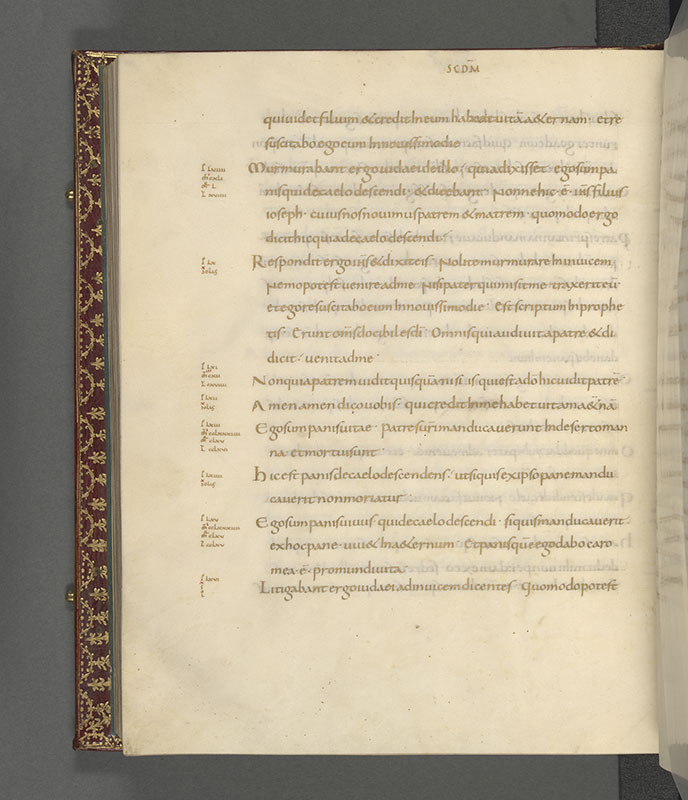 SCDM̄
qui uidet filium & credit In eum habeat uitā a&ernam · et re
suscitabo ego eum In nouissimo die
Murmurabant ergo iudaei de illo · quia dixisset · ego sum pa
nis qui de caelo descendi · & dicebant · Nonne hic · ē · ihs̄ filius
ioseph · cuius nos nouimus patrem & matrem · quomodo ergo
dicit hic quia de caelo descendi ·
Respondit ergo ihs̄ & dixit eis · Nolite murmurare In inuicem
Nemo potest uenire ad me · Nisi pater qui misit me traxerit eū
et ego resuscitabo eum In nouissimo die · Est scriptum In prophe
tis · Erunt om̄s docibiles dī · Omnis qui audiuit a patre & di
dicit · uenit ad me ·
Non quia patrem uidit quisquā nisi is qui est a dō hic uidit patrē ·
Amen amen dico uobis · qui credit In me habet uitam a&nā
Ego sum panis uitae · Patres ur̄i manducauerunt In deserto man
na et mortui sunt
hic est panis de caelo descendens · ut si quis ex ipso pane mandu
cauerit non moriatur
Ego sum panis uiuus qui de caelo descendi · si quis manducauerit
ex hoc pane · uiu& In a&ernum · Et panis quē ego dabo caro
mea · ē · pro mundi uita
Litigabant ergo iudaei ad inuicem dicentes · Quomodo potest